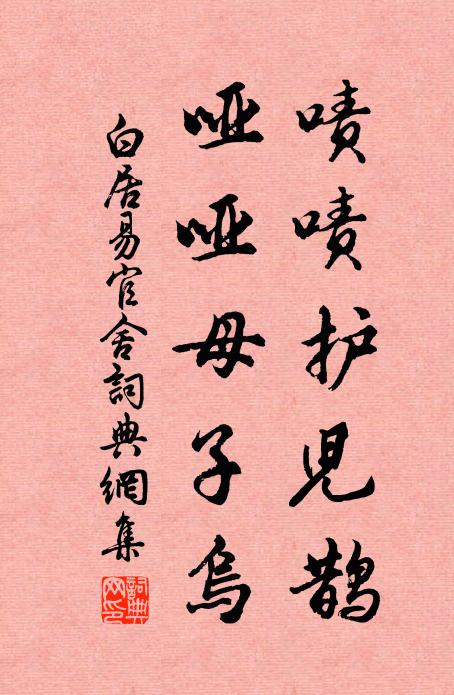 啧啧护児鹊
哑哑母子乌
白居易官舍詞典網集
詞典網印